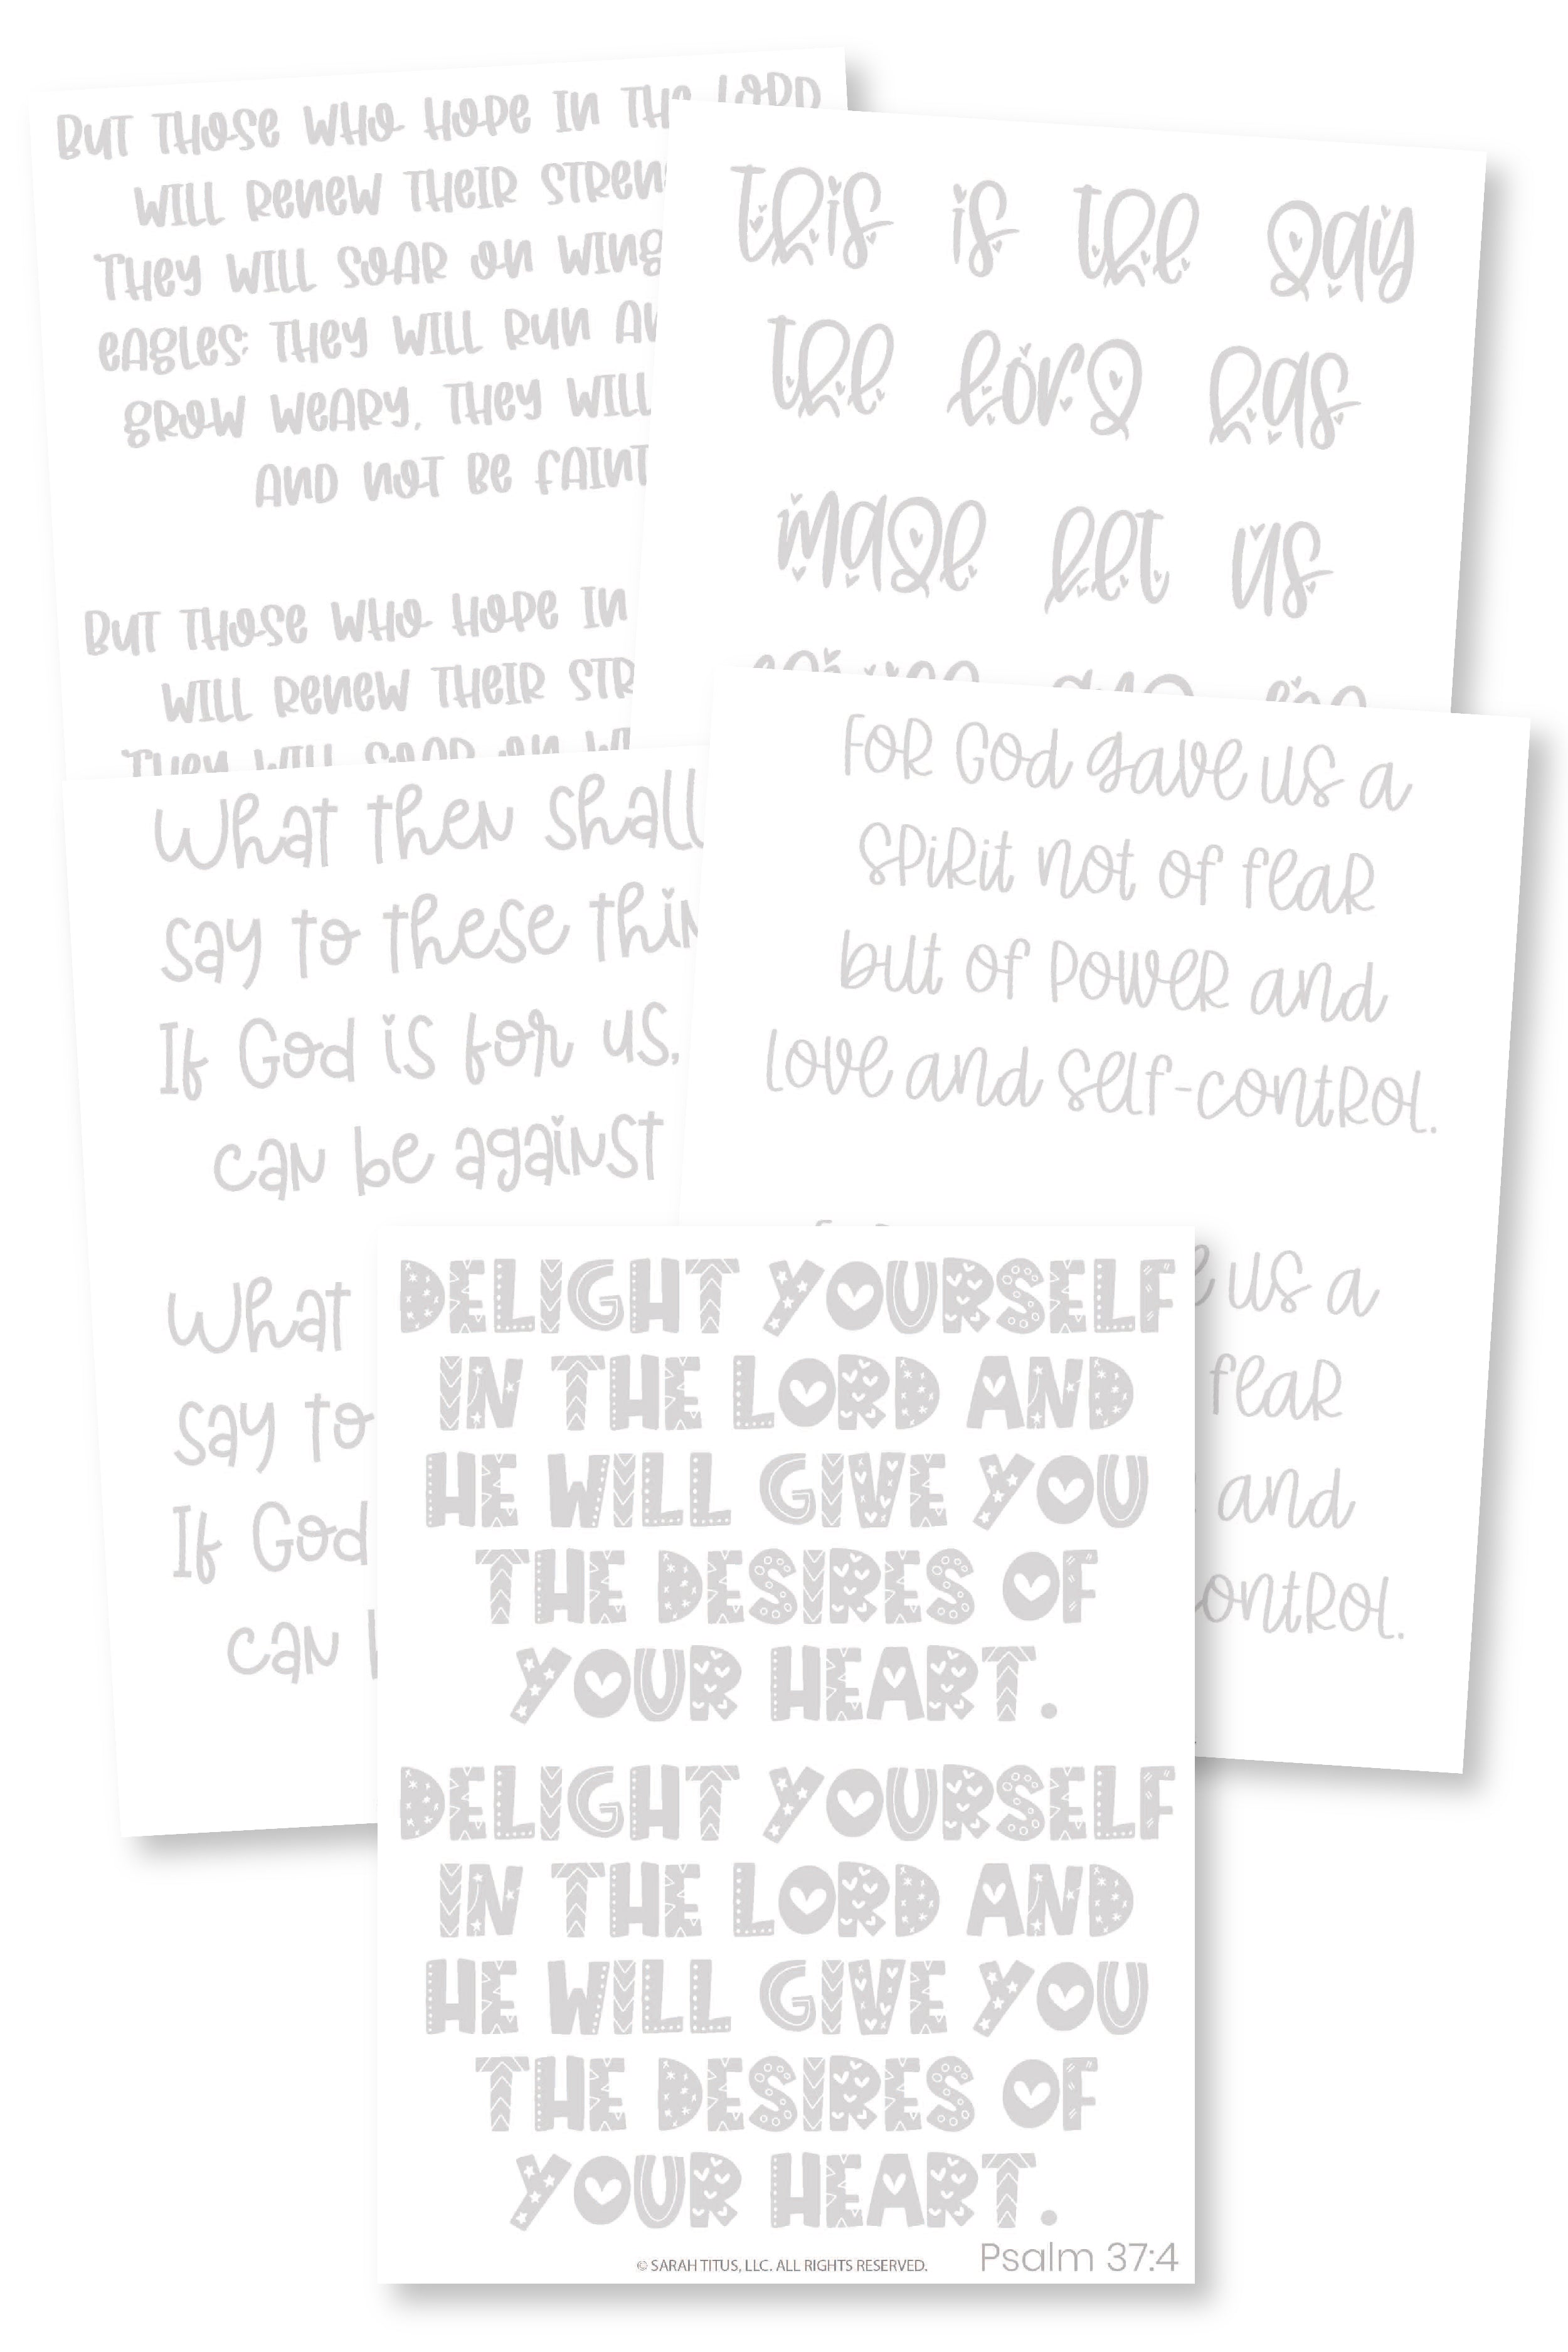 BUT THOSE WHO HOPE IN THE LORD
WILL RENEW THEIR
THEY WILL SOAR ON
EAGLES; THEY WILL RUN
GROW WEARY, THEY WILL
AND NOT BE FAINT
BUT THOSE WHO HOPE IN
WILL RENEW THEIR
THEY WILL SOAR ON
this is the day
the lord has
made let us
What then shall
say to these
If God is for us,
can be against
What
say to
If God
can
FOR God gave us a
SPiRit not of feaR
but of PoweR and
love and self-contRol.
us a
feaR
and
DELIGHT YOURSELF
IN THE LORD AND
HE WILL GIVE YOU
THE DESIRES OF
YOUR HEART.
DELIGHT YOURSELF
IN THE LORD AND
HE WILL GIVE YOU
THE DESIRES OF
YOUR HEART.
© SARAH TITUS, LLC. ALL RIGHTS RESERVED.
Psalm 37:4